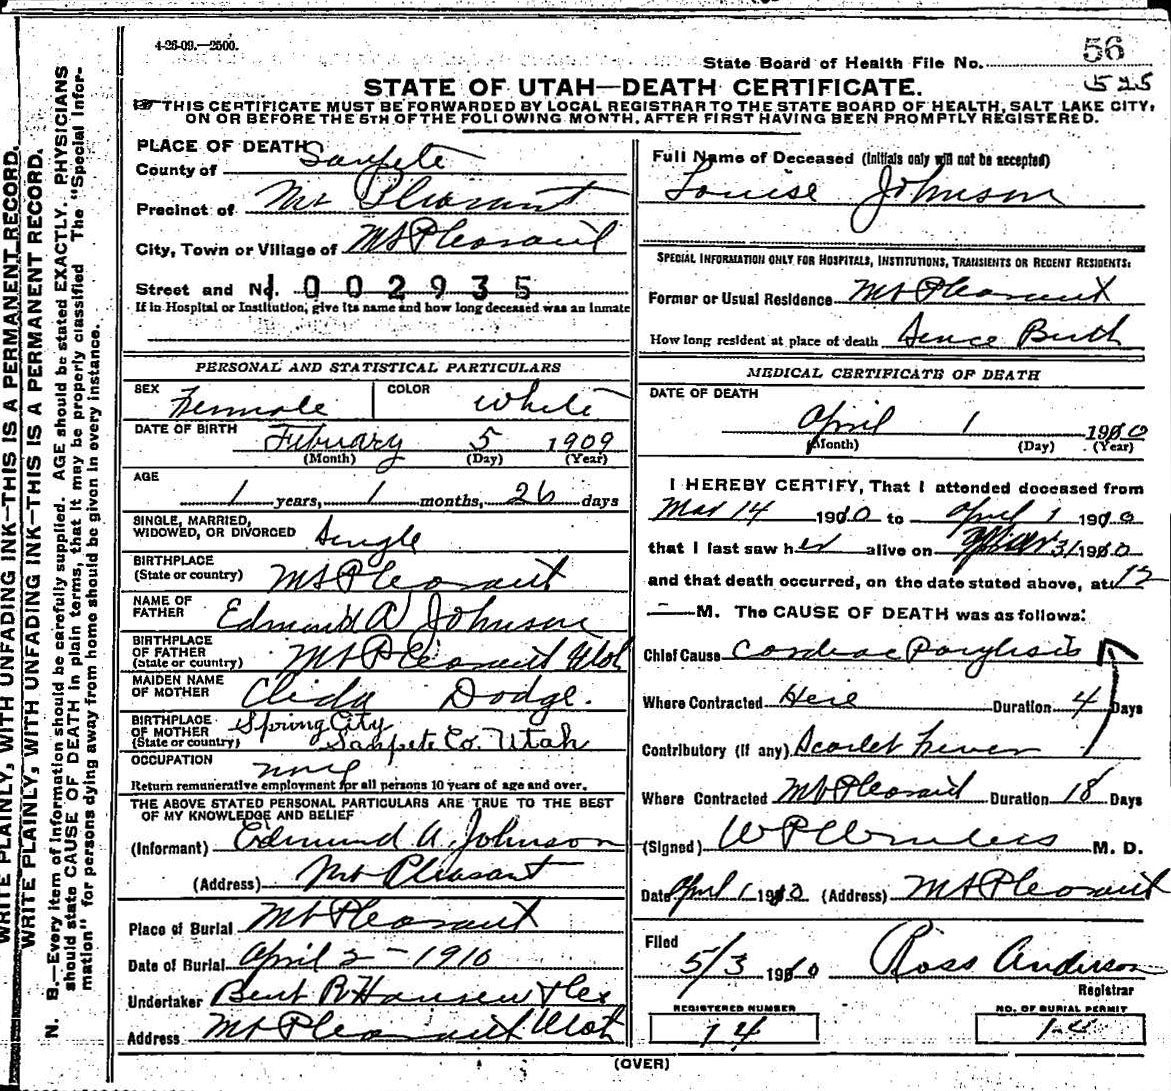 4-26-09.—2500.
State Board of Health File No. 56
525
STATE OF UTAH—DEATH CERTIFICATE.
THIS CERTIFICATE MUST BE FORWARDED BY LOCAL REGISTRAR TO THE STATE BOARD OF HEALTH, SALT LAKE CITY,
ON OR BEFORE THE 5TH OF THE FOLLOWING MONTH, AFTER FIRST HAVING BEEN PROMPTLY REGISTERED.
WRITE PLAINLY, WITH UNFADING INK—THIS IS A PERMANENT RECORD.
WRITE PLAINLY, WITH UNFADING INK—THIS IS A PERMANENT RECORD.
N. B.—Every item of information should be carefully supplied. AGE should be stated EXACTLY. PHYSICIANS
should state CAUSE OF DEATH in plain terms, that it may be properly classified The "Special Infor-
mation" for persons dying away from home should be given in every instance.
PLACE OF DEATH
County of Sanpete
Precinct of Mt Pleasant
City, Town or Village of Mt Pleasant
Street and No. 1002935
If in Hospital or Institution, give its name and how long deceased was an inmate
PERSONAL AND STATISTICAL PARTICULARS
SEX Female COLOR White
DATE OF BIRTH February 5 1909
(Month) (Day) (Year)
AGE
1 years, 1 months, 26 days
SINGLE, MARRIED,
WIDOWED, OR DIVORCED Single
BIRTHPLACE
(State or country) Mt Pleasant
NAME OF
FATHER Edmund A Johnson
BIRTHPLACE
OF FATHER
(state or country) Mt Pleasant Utah
MAIDEN NAME
OF MOTHER Clida Dodge.
BIRTHPLACE
OF MOTHER
(State or country) Spring City
Sanpete Co. Utah
OCCUPATION none
Return remunerative employment for all persons 10 years of age and over.
THE ABOVE STATED PERSONAL PARTICULARS ARE TRUE TO THE BEST
OF MY KNOWLEDGE AND BELIEF
(Informant) Edmund A. Johnson
(Address) Mt Pleasant
Place of Burial Mt Pleasant
Date of Burial April 2 - 1910
Undertaker Bent R Hansen
Address Mt Pleasant Utah
Full Name of Deceased (Initials only will not be accepted)
Louise Johnson
SPECIAL INFORMATION ONLY FOR HOSPITALS, INSTITUTIONS, TRANSIENTS OR RECENT RESIDENTS:
Former or Usual Residence Mt Pleasant
How long resident at place of death Since Birth
MEDICAL CERTIFICATE OF DEATH
DATE OF DEATH
April 1 1910
(Month) (Day) (Year)
I HEREBY CERTIFY, That I attended deceased from
Mar 14 1910 to April 1 1910
that I last saw her alive on Mar 31 1910
and that death occurred, on the date stated above, at 12
M. The CAUSE OF DEATH was as follows:
Chief Cause Cordiac Parylisis
Where Contracted Here Duration 4 Days
Contributory (if any) Scarlet Fever
Where Contracted Mt Pleasant Duration 18 Days
(Signed) M. D.
Date April 1 1910 (Address) Mt Pleasant
Filed
5/3 1910 Ross Anderson
Registrar
REGISTERED NUMBER
14
NO. OF BURIAL PERMIT
(OVER)